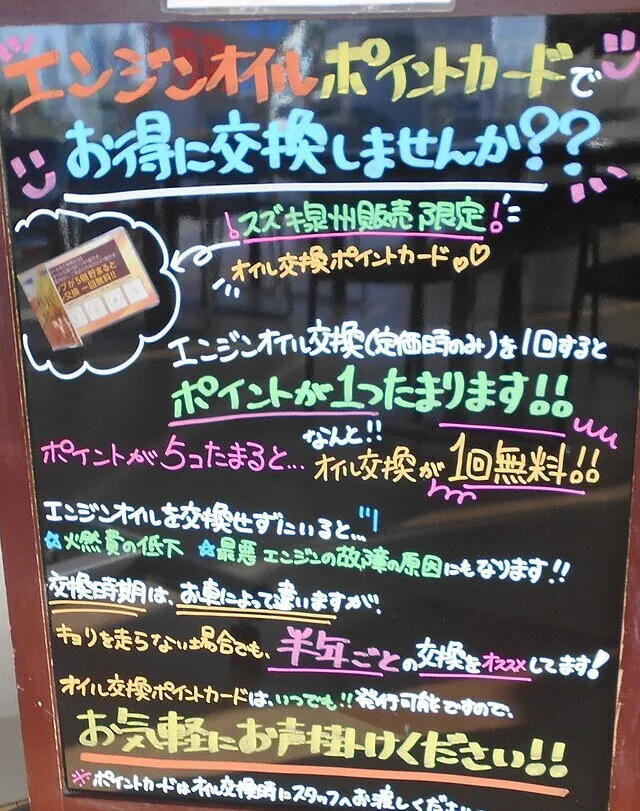 エンジンオイルポイントカードで
お得に交換しませんか??
スズキ泉州販売限定!
オイル交換ポイントカード♡♡
プが5個貯まると
交換 一回無料!!
1 2 3 4 5
エンジンオイル交換(定価時のみ)を1回すると
ポイントが1つたまります!!
なんと!!
ポイントが5コたまると... オイル交換が1回無料!!
エンジンオイルを交換せずにいると...
☆燃費の低下 ☆最悪エンジンの故障の原因にもなります!!
交換時期は、お車によって違いますが!
キョリを走らない場合でも、半年ごとの交換をオススメしてます!
オイル交換ポイントカードは、いつでも!!発行可能ですので、
お気軽にお声掛けください!!
※ポイントカードはオイル交換時にスタッフへお渡しくださ